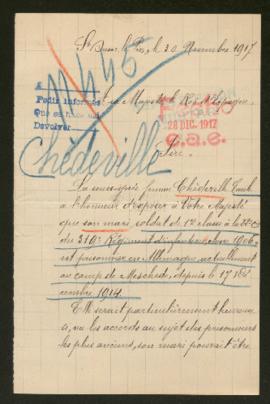 le 30 Novembre 1917
N 446
A
Pedir informes
Devolver
Sa Majesté le Roi d'Espagne
28 DIC. 1917
Sire,
Chédeville
La soussignée femme Chédeville
a l'honneur d'exposer à Votre Majesté
que son mari, soldat de 1re classe à la
du 319e Régiment d'infanterie
est prisonnier en Allemagne actuellement
au camp de Meschede, depuis le 17 Dé
cembre 1914.
Elle serait particulièrement heureuse
si, vu les accords au sujet des prisonniers
les plus anciens, son mari pourrait être